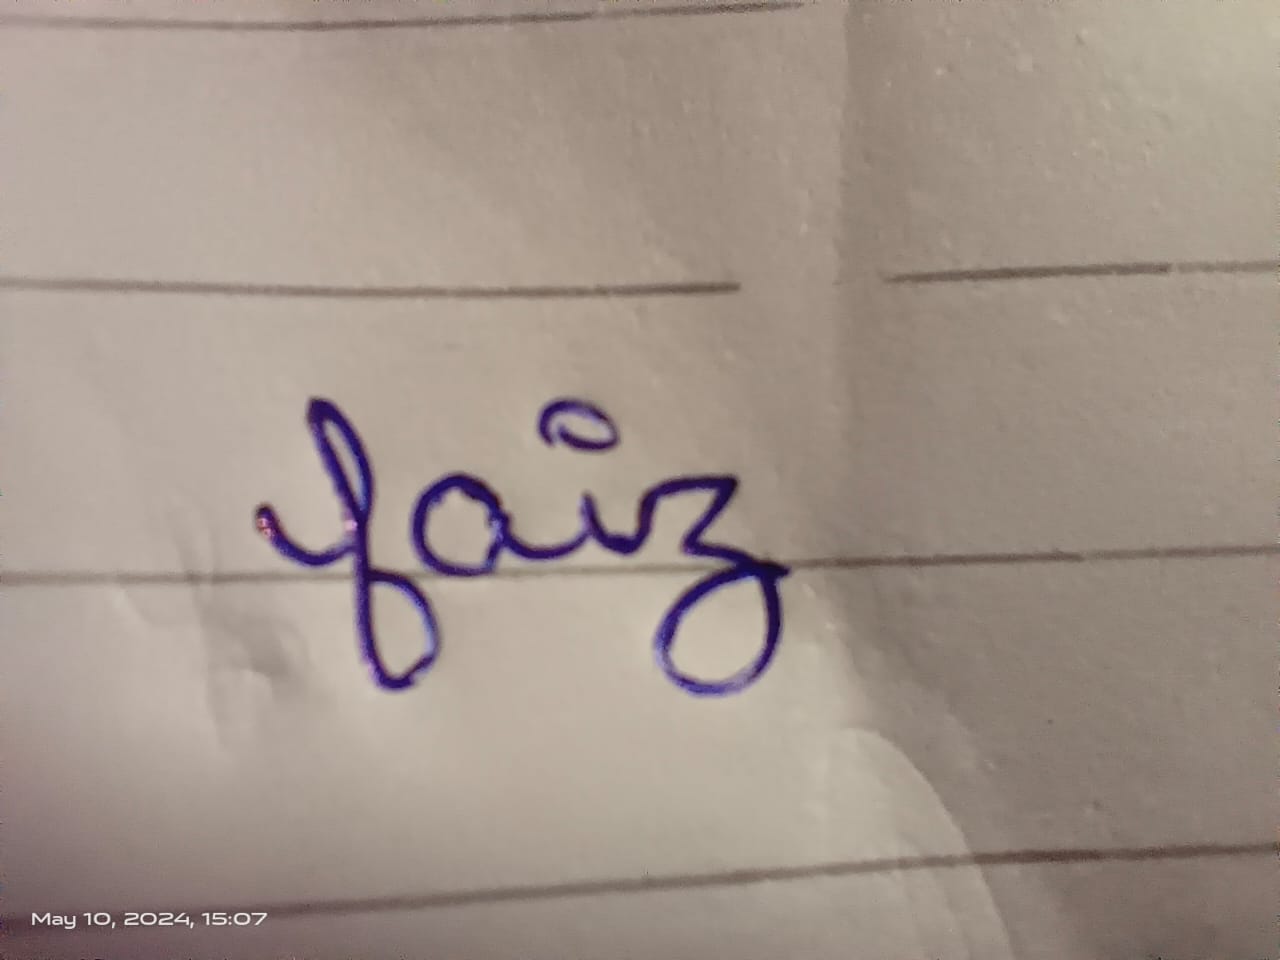 faiz
May 10, 2024, 15:07